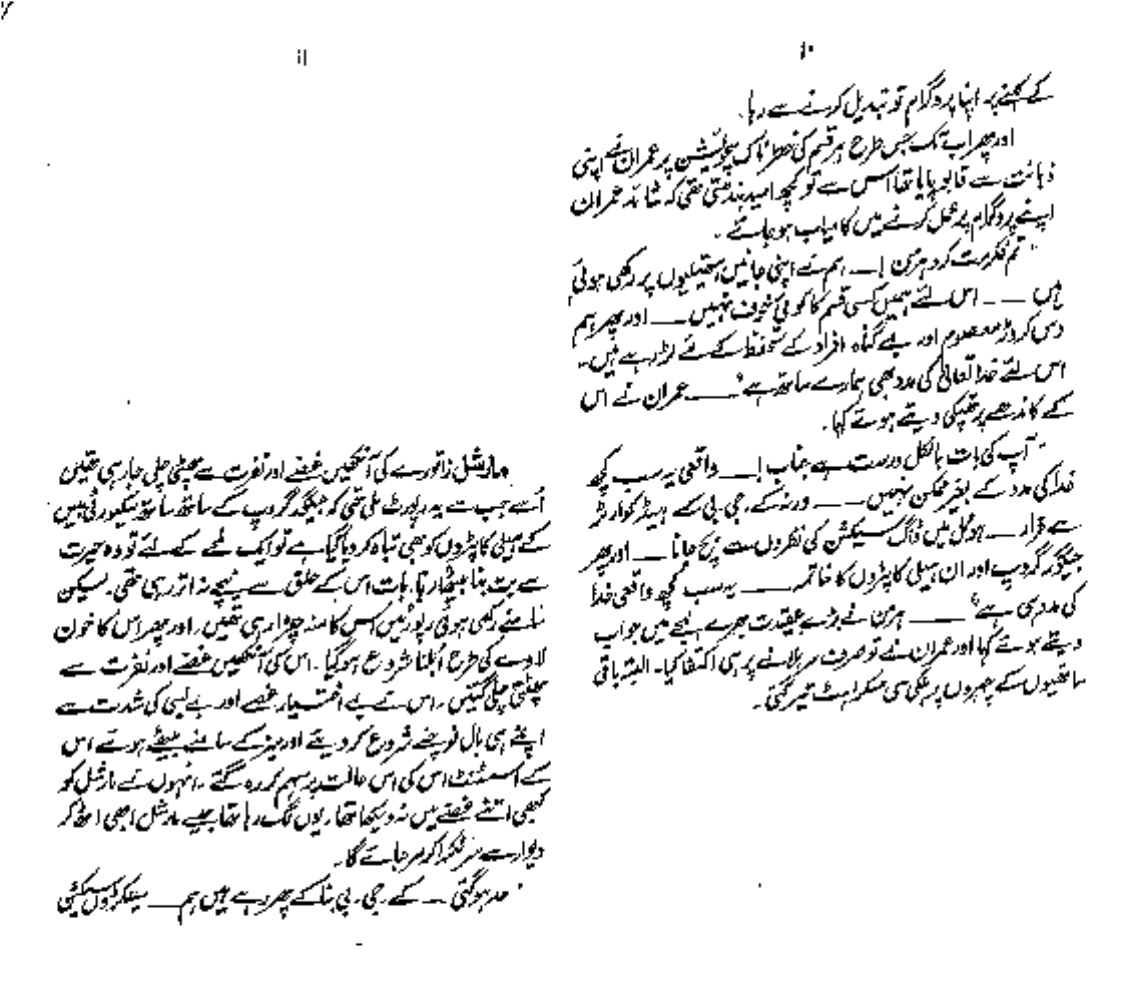 ۱۰
کے کہنے پر اپنا پروگرام تو تبدیل کرنے سے رہا۔
اور پھر اب تک جس طرح ہر قسم کی خطرناک سچوئیشن پر عمران نے اپنی
ذہانت سے قابو پایا تھا اس سے تو کچھ امید بندھتی تھی کہ شائد عمران
اپنے پروگرام پر عمل کرنے میں کامیاب ہو جائے۔
"تم فکر مت کرو ہرمن!ــــ ہم نے اپنی جانیں ہتھیلیوں پر رکھی ہوئی
ہیں ــــ اس لئے ہمیں کسی قسم کا کوئی خوف نہیں ــــ اور پھر ہم
دس کروڑ معصوم اور بے گناہ افراد کے تحفظ کے لئے لڑ رہے ہیں۔
اس لئے خدا تعالیٰ کی مدد بھی ہمارے ساتھ ہے" ــــ عمران نے اس
کے کاندھے پر تھپکی دیتے ہوئے کہا۔
"آپ کی بات بالکل درست ہے جناب!ــــ واقعی یہ سب کچھ
خدا کی مدد کے بغیر ممکن نہیں ــــ ورنہ کے۔ جی۔ بی کے ہیڈ کوارٹر
سے فرار ــــ ہوٹل میں ڈاگ سیکشن کی نظروں سے بچ جانا ــــ اور پھر
جیگور گروپ اور ان ہیلی کاپٹروں کا خاتمہ ــــ یہ سب کچھ واقعی خدا
کی مدد ہی ہے" ــــ ہرمن نے بڑے عقیدت بھرے لہجے میں جواب
دیتے ہوئے کہا اور عمران نے تو صرف سر ہلانے پر ہی اکتفا کیا۔ البتہ باقی
ساتھیوں کے چہروں پر ہلکی سی مسکراہٹ تیر گئی۔
۱۱
مارشل زاتورے کی آنکھیں غصے اور نفرت سے پھٹی چلی جا رہی تھیں
اُسے جب سے یہ رپورٹ ملی تھی کہ جیگور گروپ کے ساتھ ساتھ سیکورٹی بیس
کے ہیلی کاپٹروں کو بھی تباہ کر دیا گیا ہے تو ایک لمحے کے لئے تو وہ حیرت
سے بت بنا بیٹھا رہا۔ بات اس کے حلق سے نیچے نہ اتر رہی تھی۔ لیکن
سامنے رکھی ہوئی رپورٹیں اس کا منہ چڑا رہی تھیں۔ اور پھر اس کا خون
لاوے کی طرح اُبلنا شروع ہو گیا۔ اس کی آنکھیں غصے اور نفرت سے
پھٹتی چلی گئیں۔ اس نے بے اختیار غصے اور بے بسی کی شدت سے
اپنے ہی بال نوچنے شروع کر دیئے اور میز کے سامنے بیٹھے ہوئے اس
کے اسسٹنٹ اس کی اس حالت پر سہم کر رہ گئے۔ انہوں نے مارشل کو
کبھی اتنے غصے میں نہ دیکھا تھا۔ یوں لگ رہا تھا جیسے مارشل ابھی اٹھ کر
دیوار سے سر ٹکرا کر مر جائے گا۔
"حد ہو گئی ــــ کے۔ جی۔ بی بنا کے پھر رہے ہیں ہم ــــ سینکڑوں سیکشن